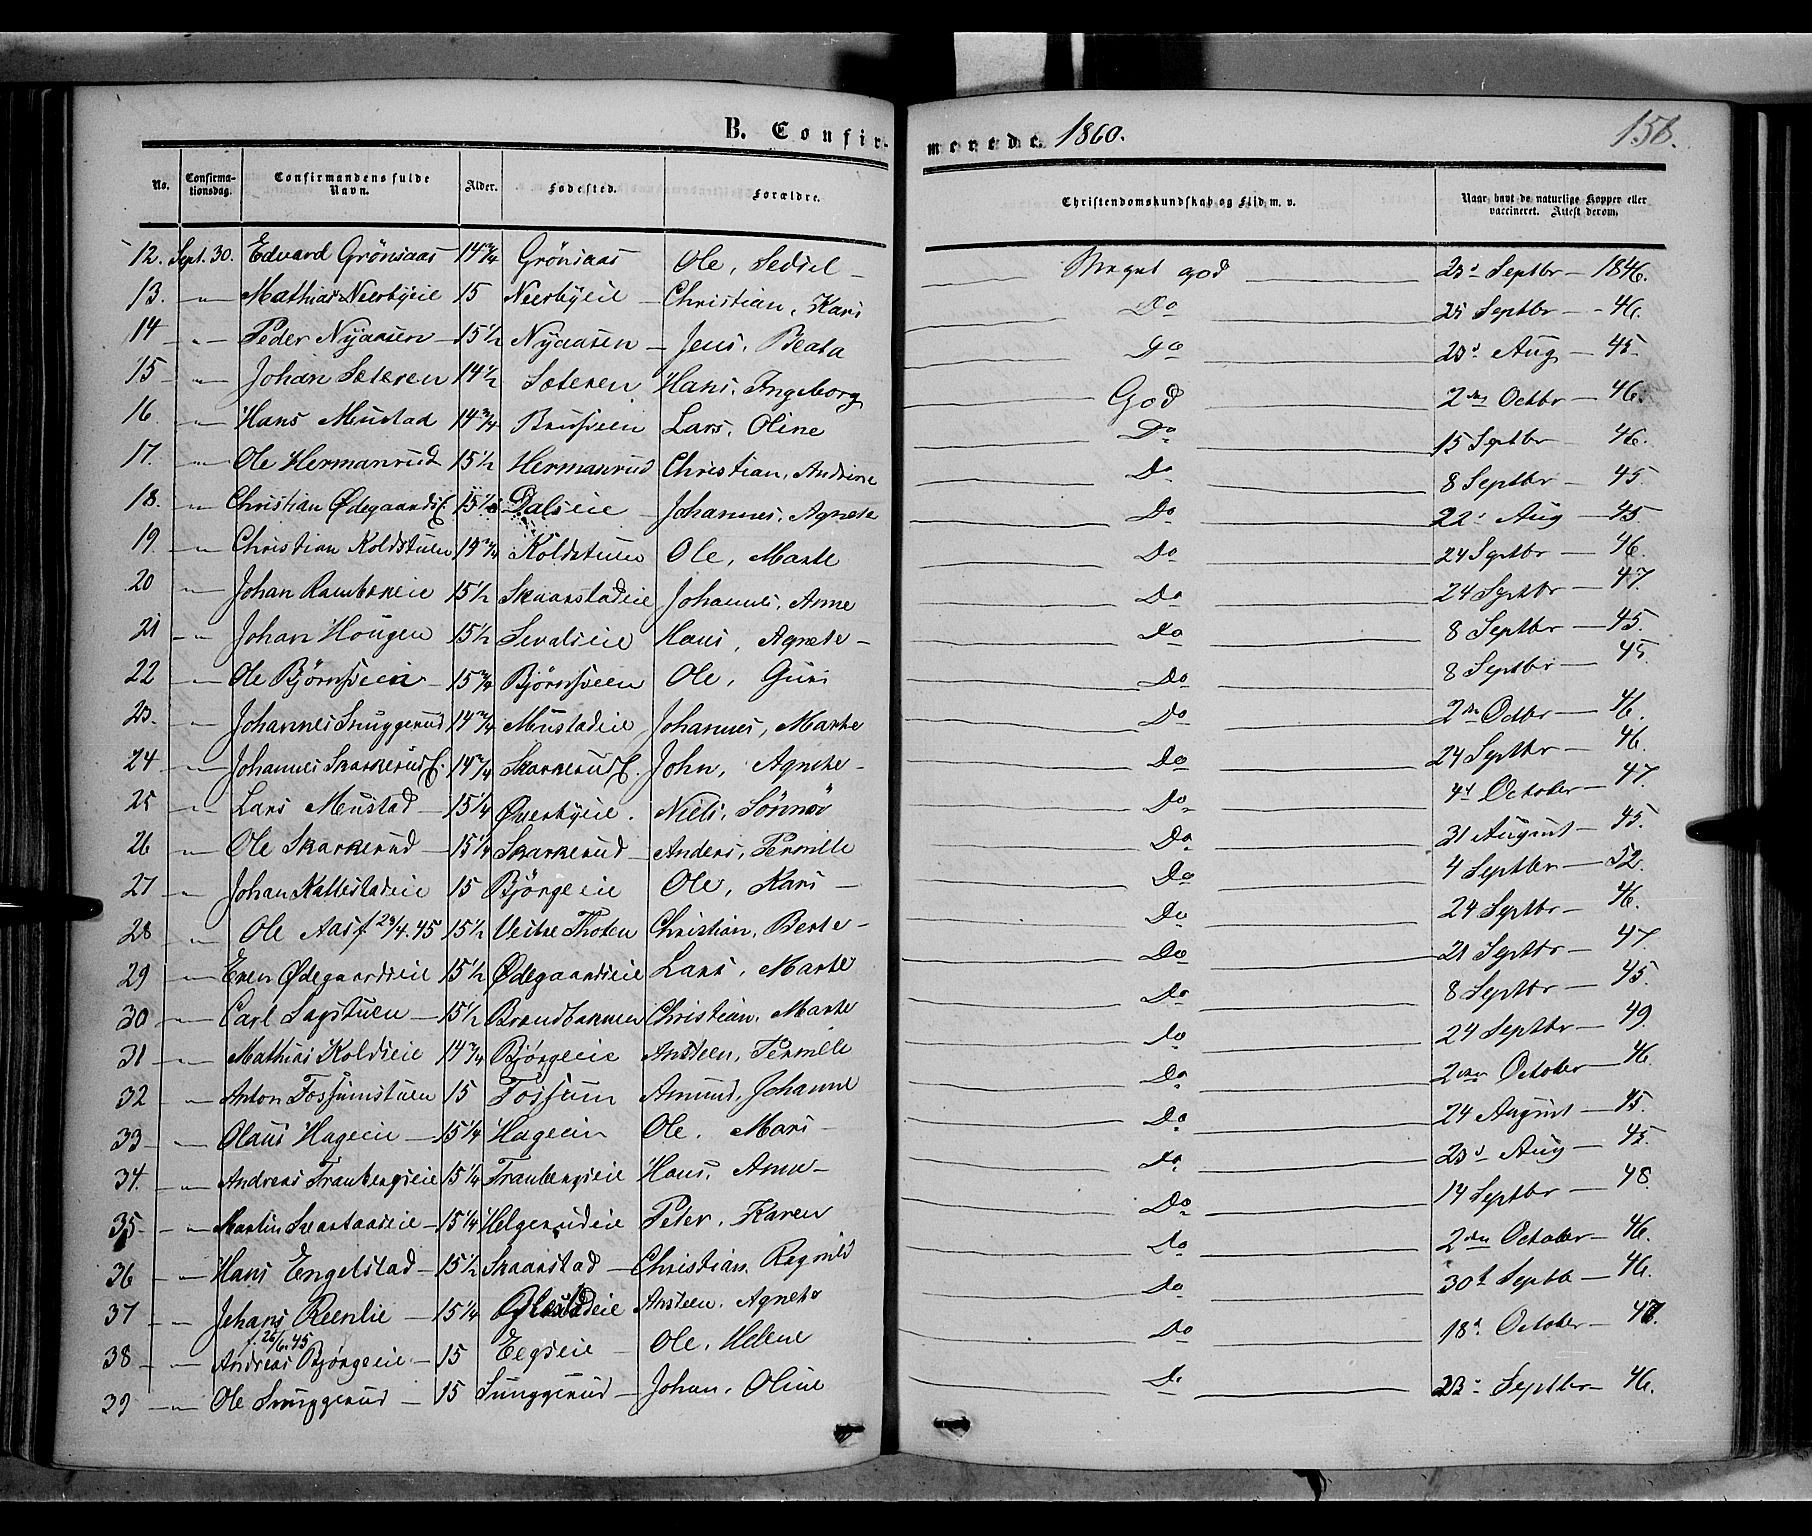 B. Confirmerede 1860. 158.
No. Confirmationsdag. Confirmandens fulde Navn. Alder. Fødested. Forældre. Christendomskundskab og Flid m. v. Naar havt de naturlige Kopper eller vaccineret. Attest derom.
12. Sept. 30. Edvard Grönsaas 14 3/4 Grönsaas Ole, Sedsel — Meget god 23 Septbr — 1846.
13. — " — Mathias Neerbyeie 15 Neerbyeie — Christian, Kari Do 25 Septbr — 46.
14 — " — Peder Nyaasen — 15 1/2 Nyaasen — Jens, Beata Do 23 Aug — 45.
15 — " — Johan Sæteren 14 1/2 Sæteren Hans, Ingeborg God 2den Octbr — 46.
16. — " — Hans Mustad 14 3/4 Brusveen Lars, Oline Do 15 Septbr — 46.
17. — " — Ole Hermanrud 15 1/2 Hermanrud Christian, Andrine Do 8 Septbr — 45
18. — " — Christian Ødegaards E. 15 1/2 Dalseie — Johannes, Agnete Do 22 Aug — 45.
19. — " — Christian Koldstuen 14 3/4 Koldstuen Ole, Marte Do 24 Septbr — 46.
20 — " — Johan Rambekeie 15 1/2 Skaarstadeie Johannes, Anne Do 24 Septbr — 47.
21 — " — Johan Hougen 15 1/2 Sevalseie Hans, Agnete — Do 8 Septbr — 45.
22 — " — Ole Björnsveen — 15 3/4 Björnsveen Ole, Guri Do 8 Septbr — 45.
23. — " — Johannes Snuggerud 14 3/4 Mustadeie Johannes, Marte Do 2den Octbr — 46.
24 — " — Johannes Skarkerud E. 14 3/4 Skarkerud E. John, Agnete — Do 24 Septbr — 46.
25 — " — Lars Mustad — 15 1/4 Øverbyeie. Niels, Sönnöv Do 4 October — 47.
26 — " — Ole Skarkerud — 15 1/4 Skarkerud — Anders, Pernille Do 31 August — 45.
27 — " — Johan Kallestadeie 15 Björgeeie Ole, Kari — Do 4 Septbr — 52.
28 — " — Ole Aas f 23/4.45 15 1/2 Vestre Thoten Christian, Berte — Do 24 Septbr — 46.
29 — " — Even Ødegaardseie 15 1/2 Ødegaardseie Lars, Marte Do 21 Septbr — 47
30 — " — Carl Sagstuen — 15 1/2 Brandbakken Christian, Marte Do 8 Septbr — 45.
31 — " — Mathias Koldseie 14 3/4 Björgeeie Ansteen, Pernille Do 24 Septbr — 49.
32 — " — Anton Fossumstuen 15 Fossum Amund, Johanne Do 2den October — 46.
33 — " — Olaus Hageeie — 15 1/4 Hageeie Ole, Mari — Do 24 August — 45.
34. — " — Andreas Traubergseie 15 1/4 Traubergseie Hans, Anne — Do 23 Aug — 45.
35 — " — Martin 15 1/4 Helgerudeie Peter, Karen Do 14 Septbr — 48.
36 — " — Hans Engelstad — 15 1/2 Skaarstad — Christian, Regnild Do 2den October — 46.
37 — " — Johans Reenlie — 15 1/4 Ansteen, Agnete Do 30 Septb — 46.
38 — " — f. 26/6.45 Andreas Bjørgeeie — 15 Eegseie — Ole, Helene Do 18 October — 47.
39 — " — Ole Snuggerud — 15 Snuggerud — Johan, Oline Do 23 Septbr — 46.